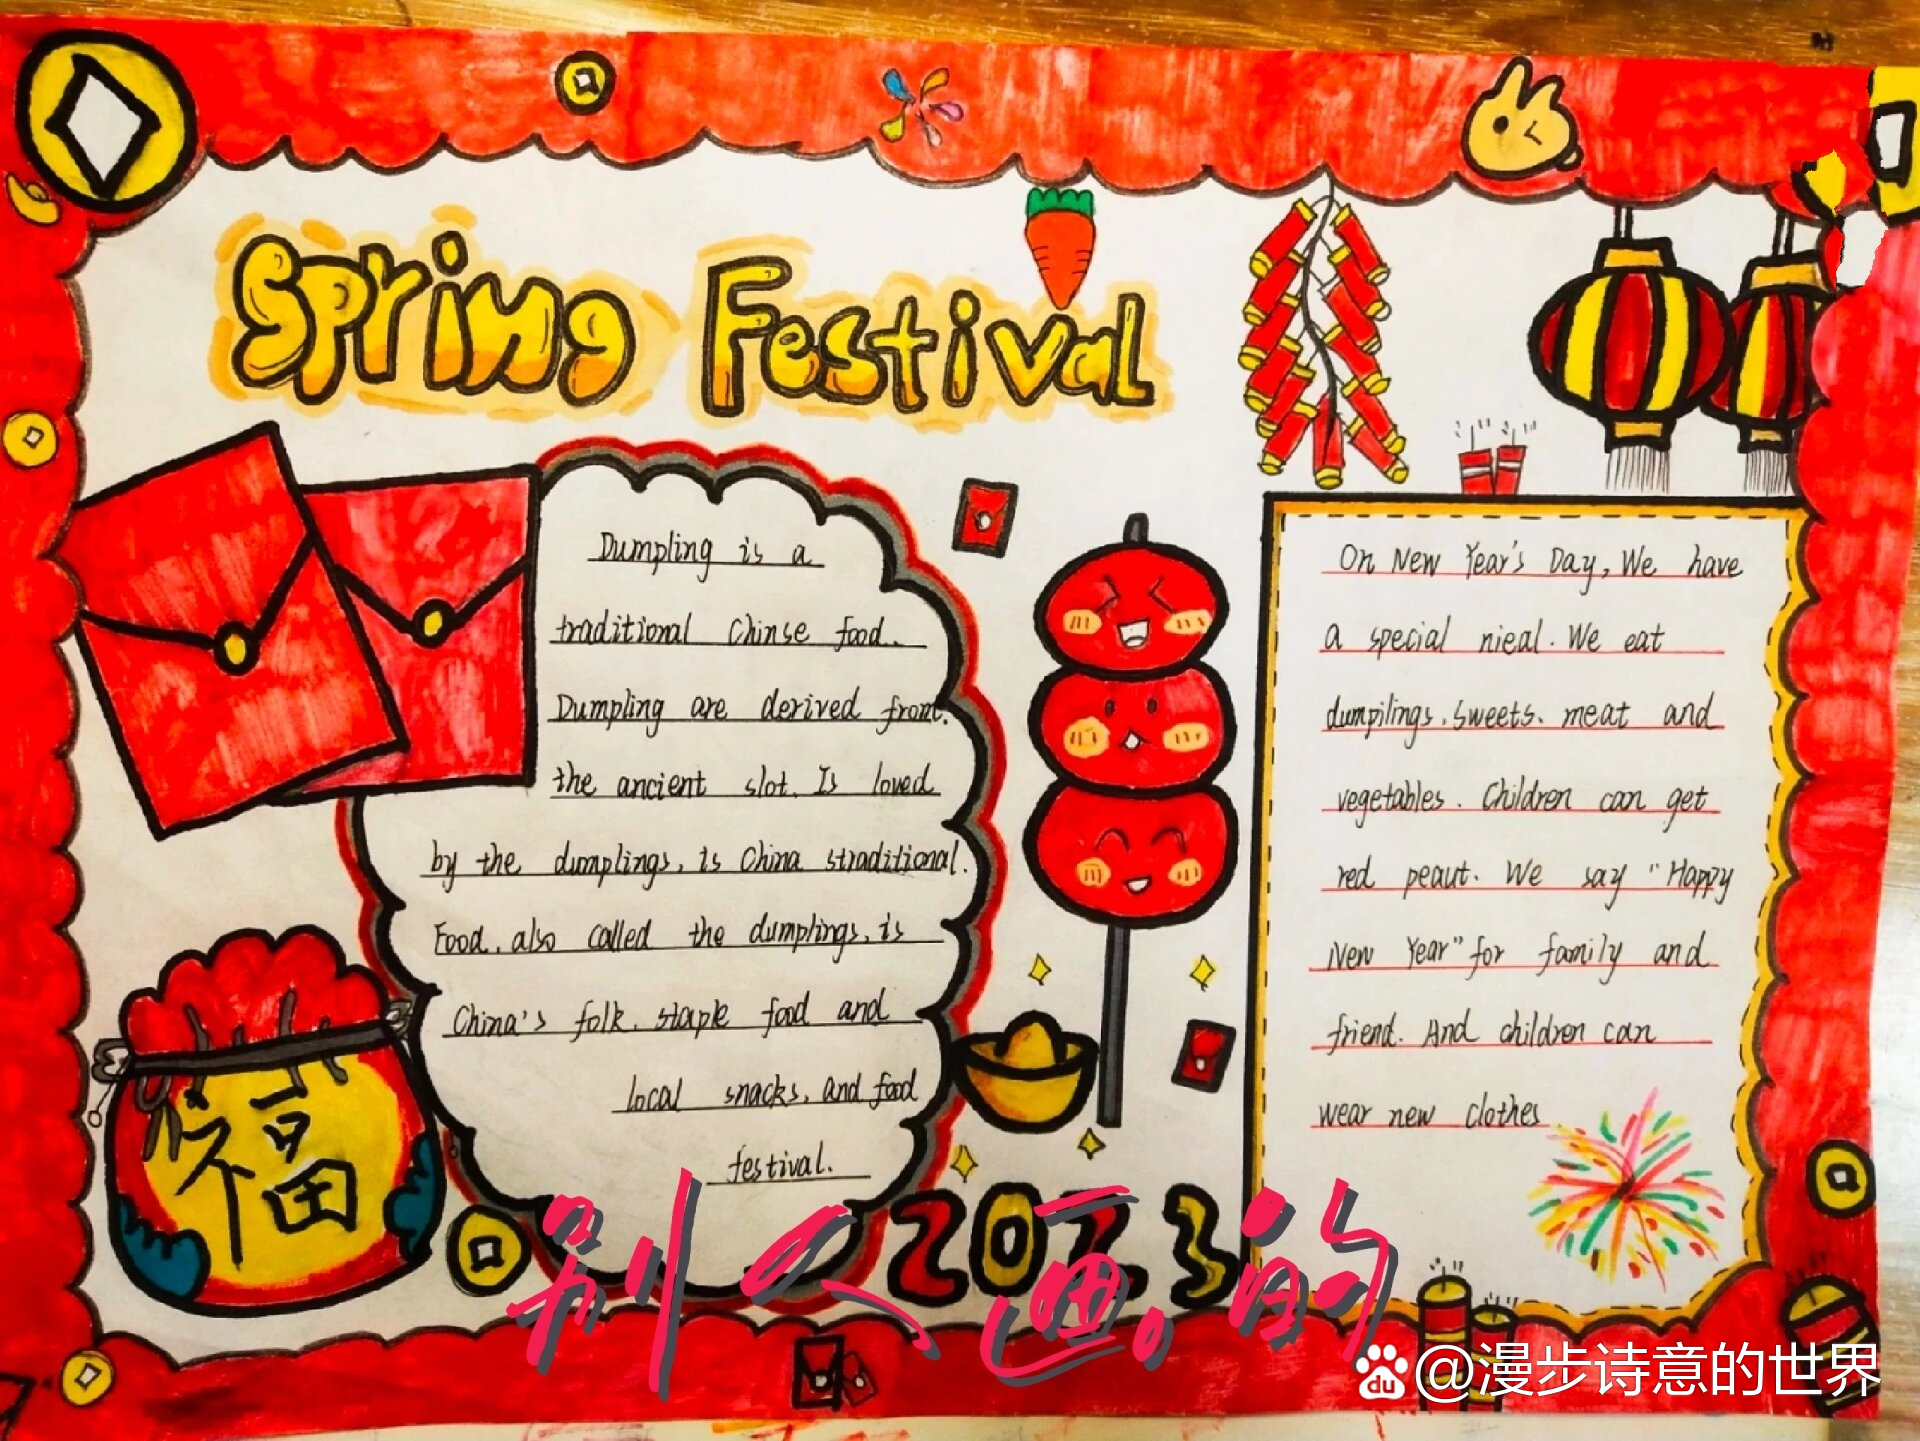 Spring Festival
Dumpling is a
traditional Chinse food.
Dumpling are derived front.
the ancient slot. Is loved
by the dumplings, is China straditional.
Food, also called the dumplings, is
China's folk, staple food and
local snacks, and food
festival.
On New Year's Day, We have
a special nieal. We eat
dumpilings, sweets, meat and
vegetables. Children can get
red peaut. We say "Happy
New Year" for family and
friend. And children can
wear new clothes
福
2023
别人画的
du @漫步诗意的世界